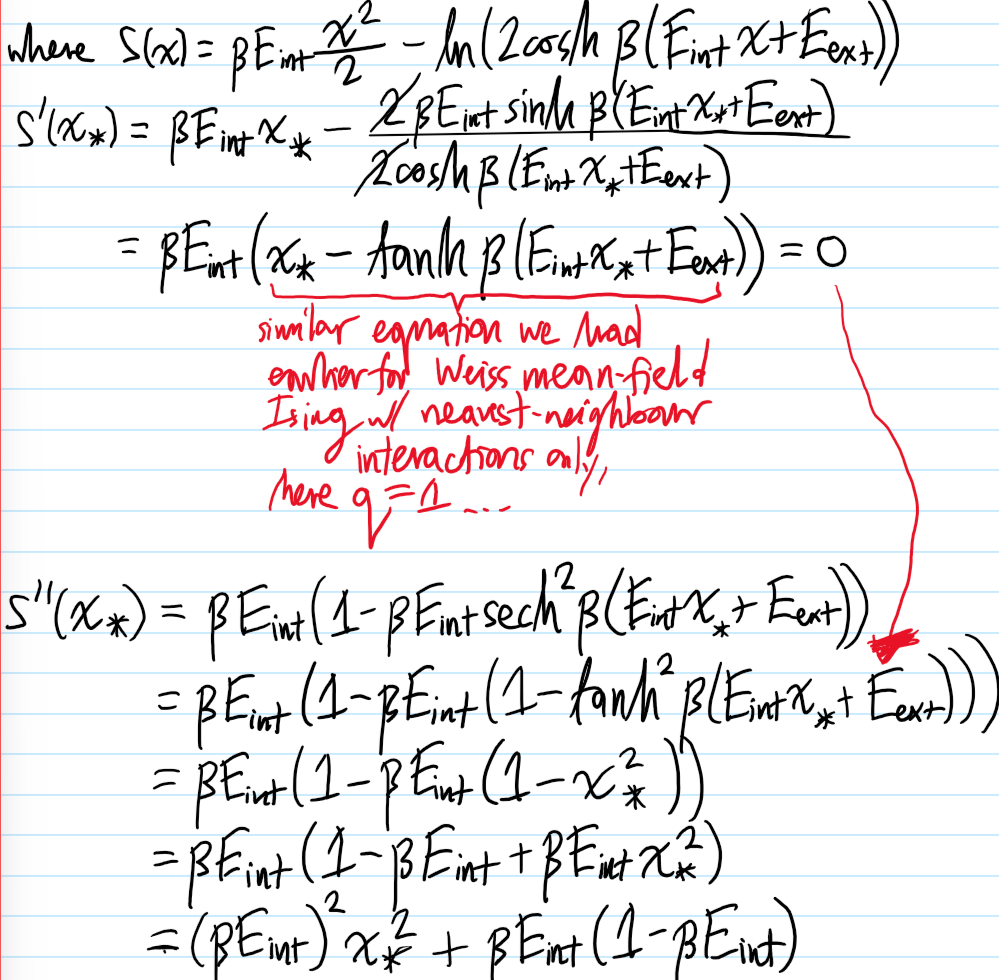 where S(x) = βE_int x²/2 − ln(2cosh β(E_int x + E_ext))
S'(x_*) = βE_int x_* − 2βE_int sinh β(E_int x_* + E_ext) / 2cosh β(E_int x_* + E_ext)
= βE_int(x_* − tanh β(E_int x_* + E_ext)) = 0
similar equation we had
earlier for Weiss mean-field
Ising w/ nearest-neighbour
interactions only,
here q = 1 ...
S''(x_*) = βE_int(1 − βE_int sech² β(E_int x_* + E_ext))
= βE_int(1 − βE_int(1 − tanh² β(E_int x_* + E_ext)))
= βE_int(1 − βE_int(1 − x_*²))
= βE_int(1 − βE_int + βE_int x_*²)
= (βE_int)² x_*² + βE_int(1 − βE_int)